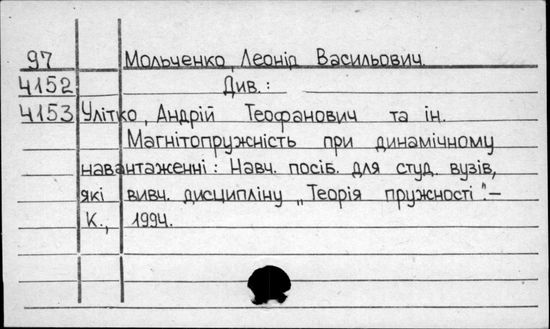 97 Мольченко, Леонід Васильович.
4152 Див.:
4153 Улітко, Андрій Теофанович та ін.
Магнітопружність при динамічному
навантаженні: Навч. посіб. для студ. вузів,
які вивч. дисципліну „Теорія пружності".–
К., 1994.